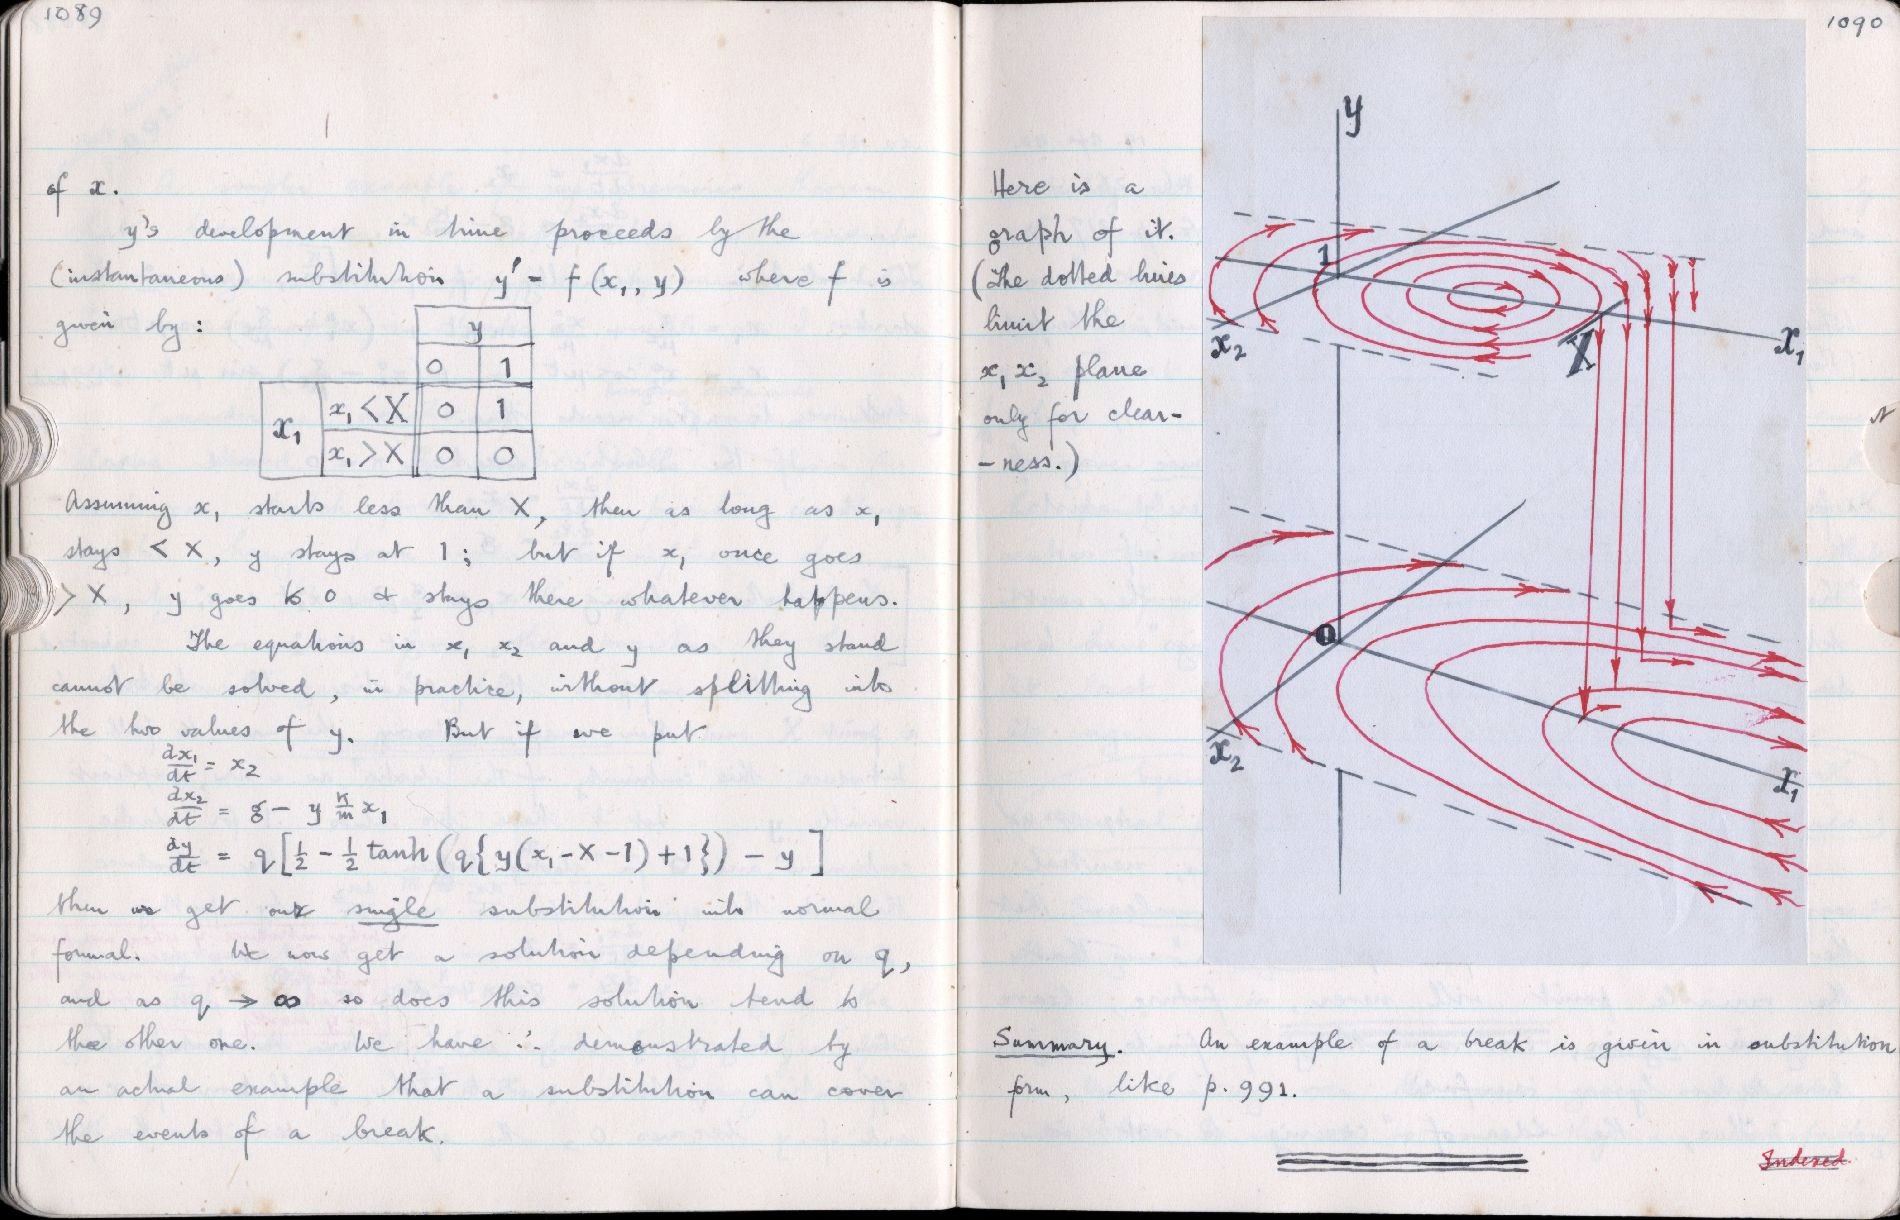 1089
of x.
y's development in time proceeds by the
(instantaneous) substitution y' = f(x₁, y) where f is
given by:
y
0 1
x₁ x₁ < X 0 1
x₁ > X 0 0
Assuming x₁ starts less than X, then as long as x₁
stays < X, y stays at 1; but if x₁ once goes
> X, y goes to 0 & stays there whatever happens.
The equations in x₁ x₂ and y as they stand
cannot be solved, in practice, without splitting into
the two values of y. But if we put
dx₁/dt = x₂
dx₂/dt = g - y k/m x₁
dy/dt = q[½ - ½ tanh(q{y(x₁-X-1)+1}) - y]
then we get our single substitution into normal
formal. We now get a solution depending on q,
and as q → ∞ so does this solution tend to
the other one. We have ∴ demonstrated by
an actual example that a substitution can cover
the events of a break.
1090
Here is a
graph of it.
(The dotted lines
limit the
x₁ x₂ plane
only for clear-
-ness.)
y
1
x₂
X
x₁
0
x₂
x₁
Summary. An example of a break is given in substitution
form, like p. 991.
Indexed